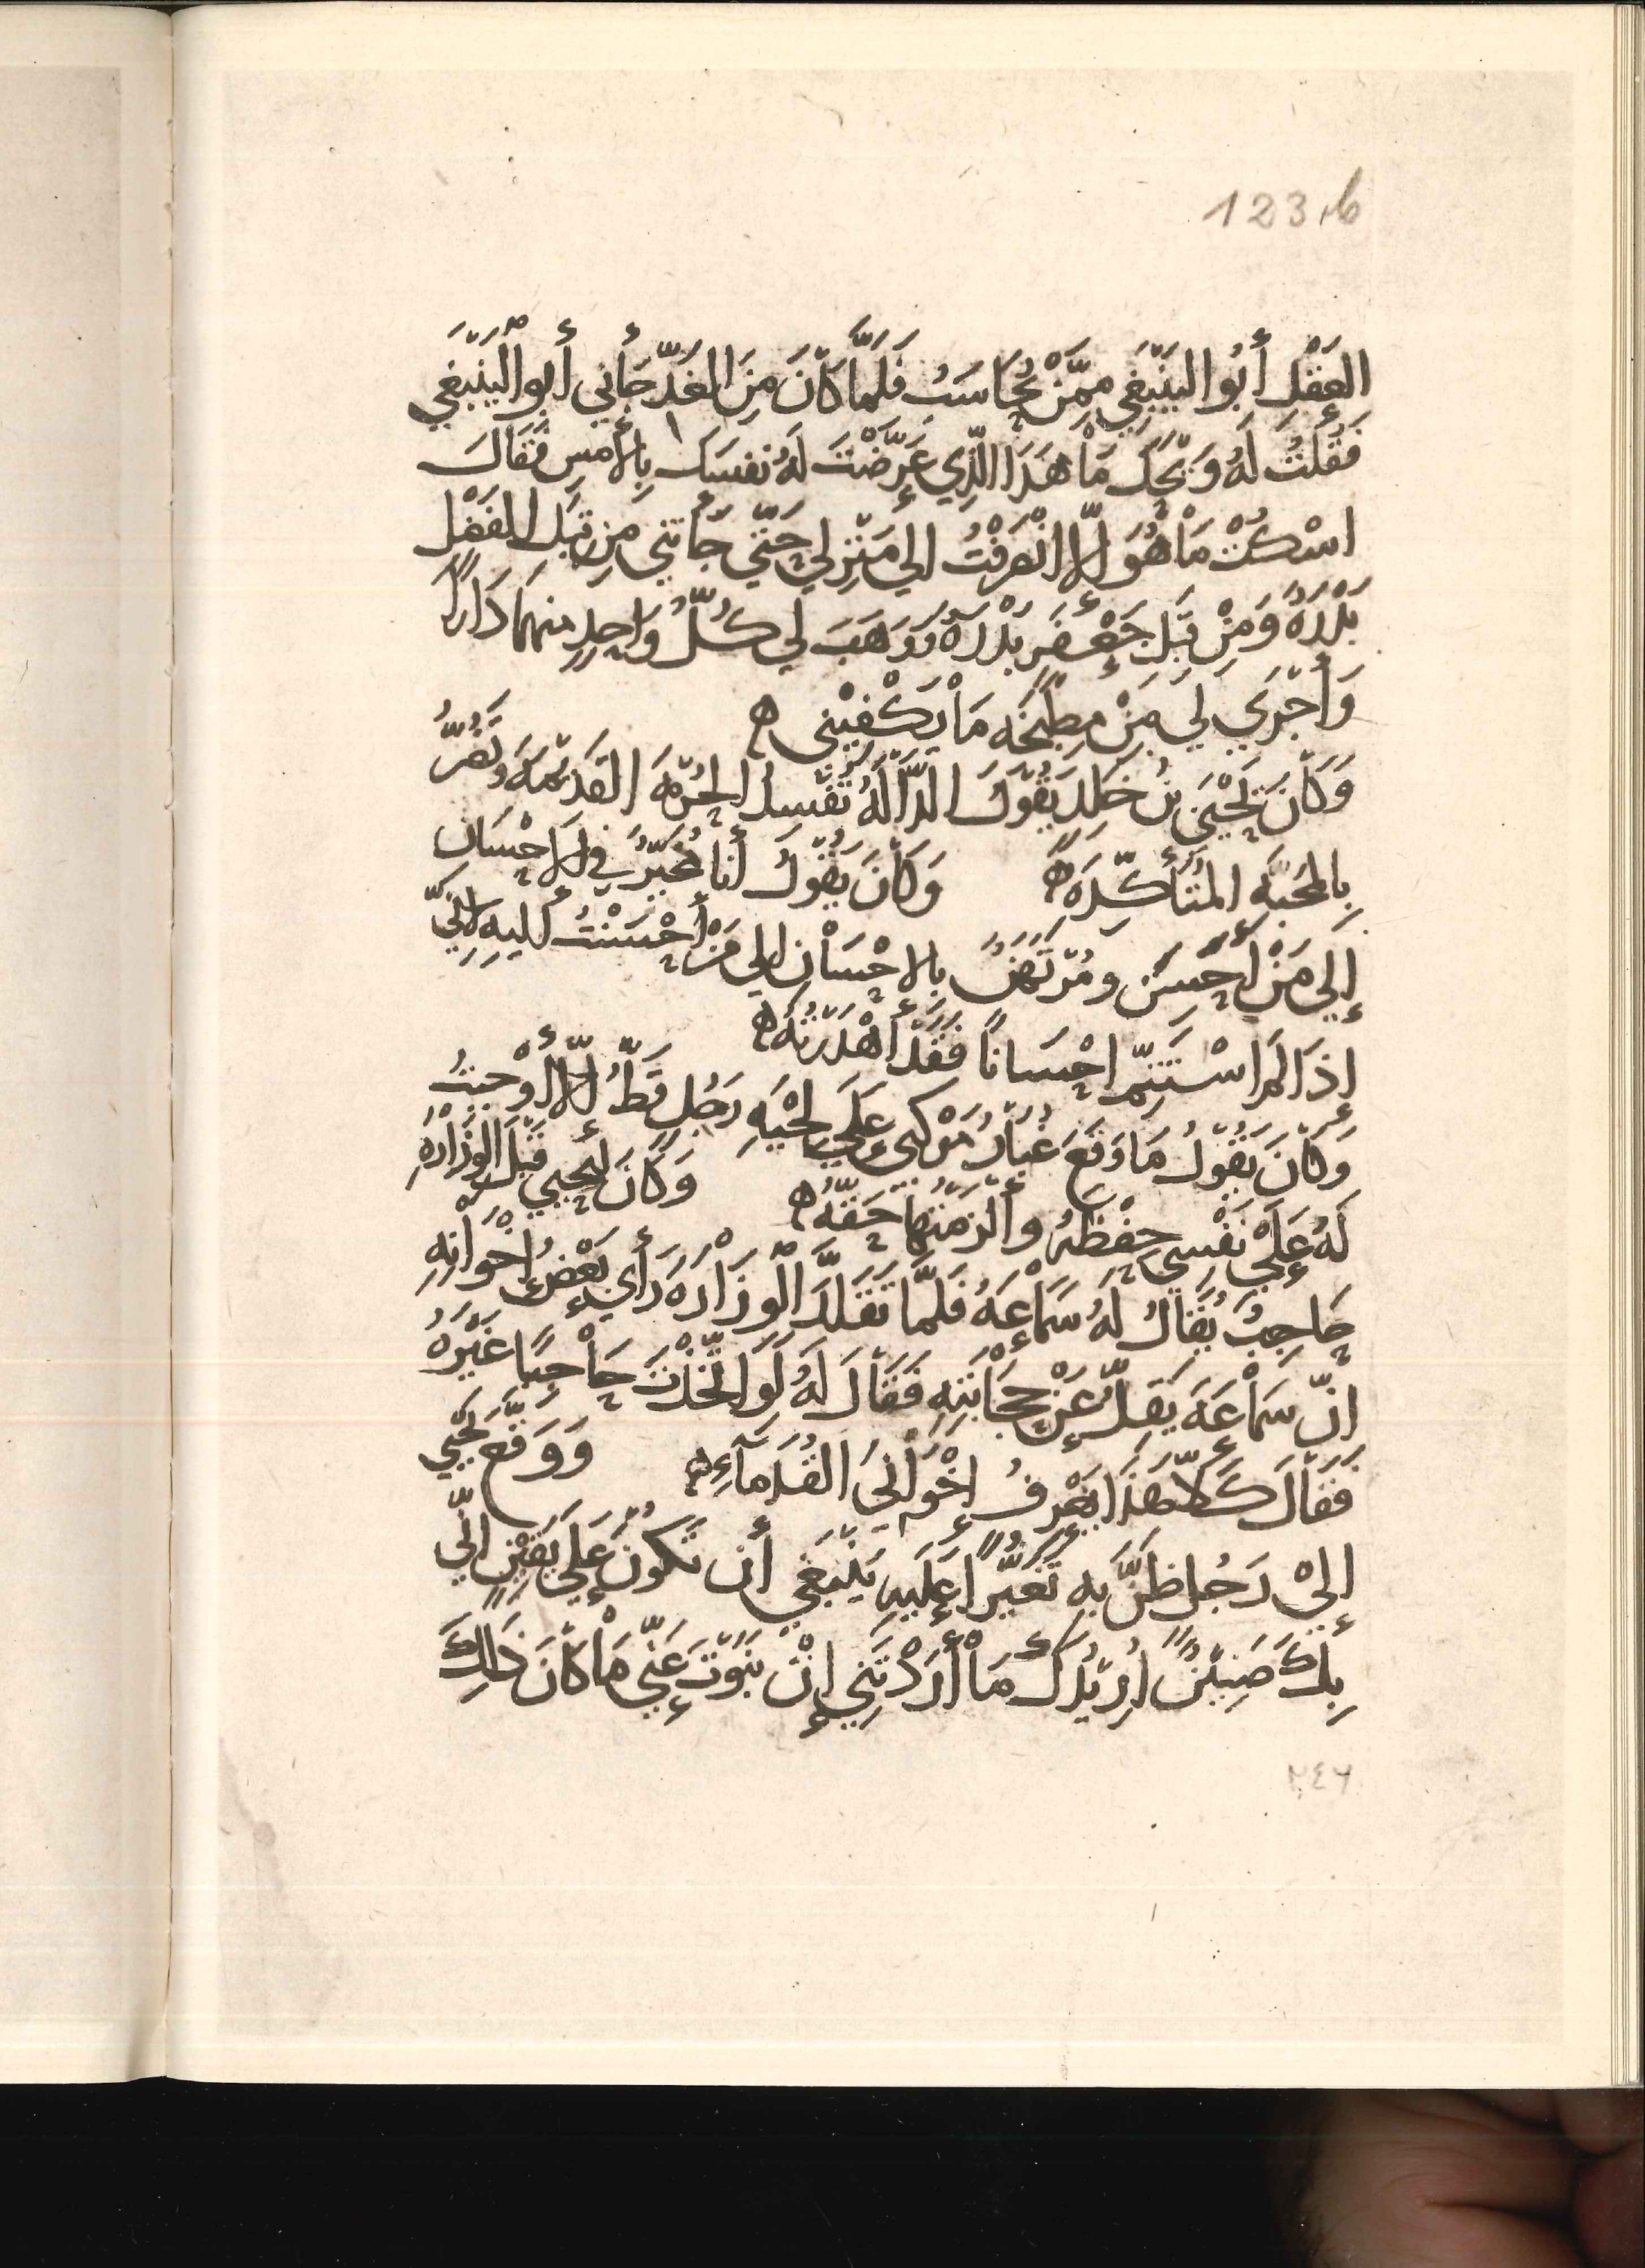 123,b
العَقْلِ أَبُو اليَنْبَغِي مِمَّنْ يُحَاسَبُ فَلَمَّا كَانَ مِنَ الغَدِّ جَأني أَبو اليَنْبَغي
فَقُلتُ لَهُ وَيْحَكَ مَا هَذَا الَّذِي عَرَّضْتَ لَهُ نَفسَكَ بِالأَمسِ فَقَالَ
اسْكُتْ مَا هُوَ إلّا انْصَرَفْتُ إلي مَنْزِلي حَتّي جَأتني مِن قِبَلِ الفَضْلِ
بَدْرَةٌ وَمِنْ قِبَلِ جَعْفَرٍ بَدْرَةٌ وَوَهَبَ لي كُلُّ وَاحِدٍ مِنهمَا دَاراً
وَأَجْرَي لي مِنْ مطبَخَه مَا يَكْفِيْني ه
وَكَانَ يَحْيَى بنُ خَالِدٍ يَقُولُ الدَّالَّهُ تُفْسِدُ الحُرْمَهَ القَدِيْمَهَ وَتَضُرُّ
بِالمَحَبَّهِ المُتَأَكِّدَهِ ه وَكَانَ يَقُولُ أَنَا مُخَيَّرٌ في الإحْسَانِ
إلي مَنْ أُحْسِنُ وَمُرْتَهَنٌ بِالاحْسَانِ إلي مَنْ أَحْسَنْتُ إليهِ لأنّي
إذَا لَم اسْتَتِمّ إحْسَاناً فَقَدْ أَهْدَرْتُهُ ه
وَكَانَ يَقُولُ مَا وَقَعَ غُبَارُ مَوْكبي عَلَي لِحْيَهِ رَجُلٍ قَطُّ إلّا أوْجَبتُ
لَهُ عَلَيْ نَفْسِي حِفْظَهُ وَأَلْزَمْتُهَا حَقَّهُ ه وَكَانَ ليَحيي قَبْلَ الوِزَارَهِ
حَاجِبٌ يُقَالُ لَهُ سَمَاعِهُ فَلَمَّا تَقَلَّدَ الوِزَارَهَ رَأَي بَعْضُ اخْوَانِهِ
انَّ سَمَاعَهَ يَقِلُّ عَنْ حِجَابَتِهِ فَقَالَ لَهُ لَو اتَّخَذْتَ حَاجِبًا غَيْرَهُ
فَقَالَ كَلَّا هَذَا يَعْرِفُ إخْوَانيَ القُدَمَآءِ ه وَوَقَّعَ يَحْيَي
إليْ رَجُلٍ ظَنَّ بِهِ تَغَيُّراً عَلَيهِ يَنْبَغي أَن تَكُونَ عَلَي يَقِيْنٍ انّي
بِكَ ضَنِيْنٌ اُرِيْدُكَ مَا أَرَدْتَني إنْ نَبَوْتَ عَنّي مَا كَانَ ذَالِكَ
٢٤٦